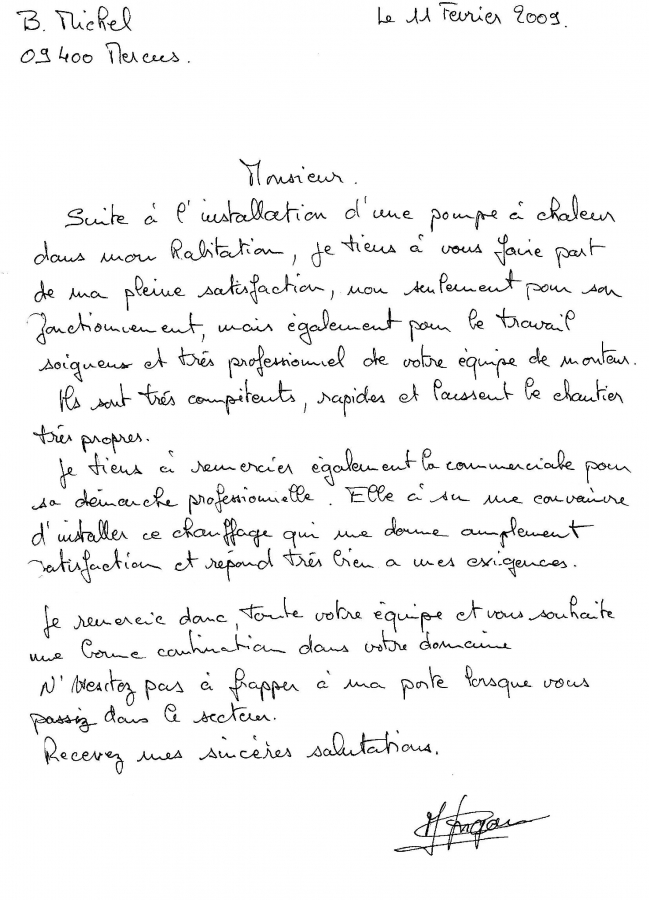 B. Michel
Le 11 Fevrier 2009.
09400 Mercus.
Monsieur.
Suite à l'installation d'une pompe à chaleur
dans mon habitation, je tiens à vous faire part
de ma pleine satisfaction, non seulement pour son
fonctionnement, mais également pour le travail
soigneux et trés professionnel de votre équipe de monteur.
Ils sont trés compétents, rapides et laissent le chantier
trés propres.
Je tiens à remercier également la commerciale pour
sa démarche professionnelle. Elle à su me convaincre
d'installer ce chauffage qui me donne amplement
satisfaction et répond trés bien a mes exigences.
Je remercie donc, toute votre équipe et vous souhaite
une bonne continuation dans votre domaine
N'hésitez pas à frapper à ma porte lorsque vous
passiz dans le secteur.
Recevez mes sincères salutations.